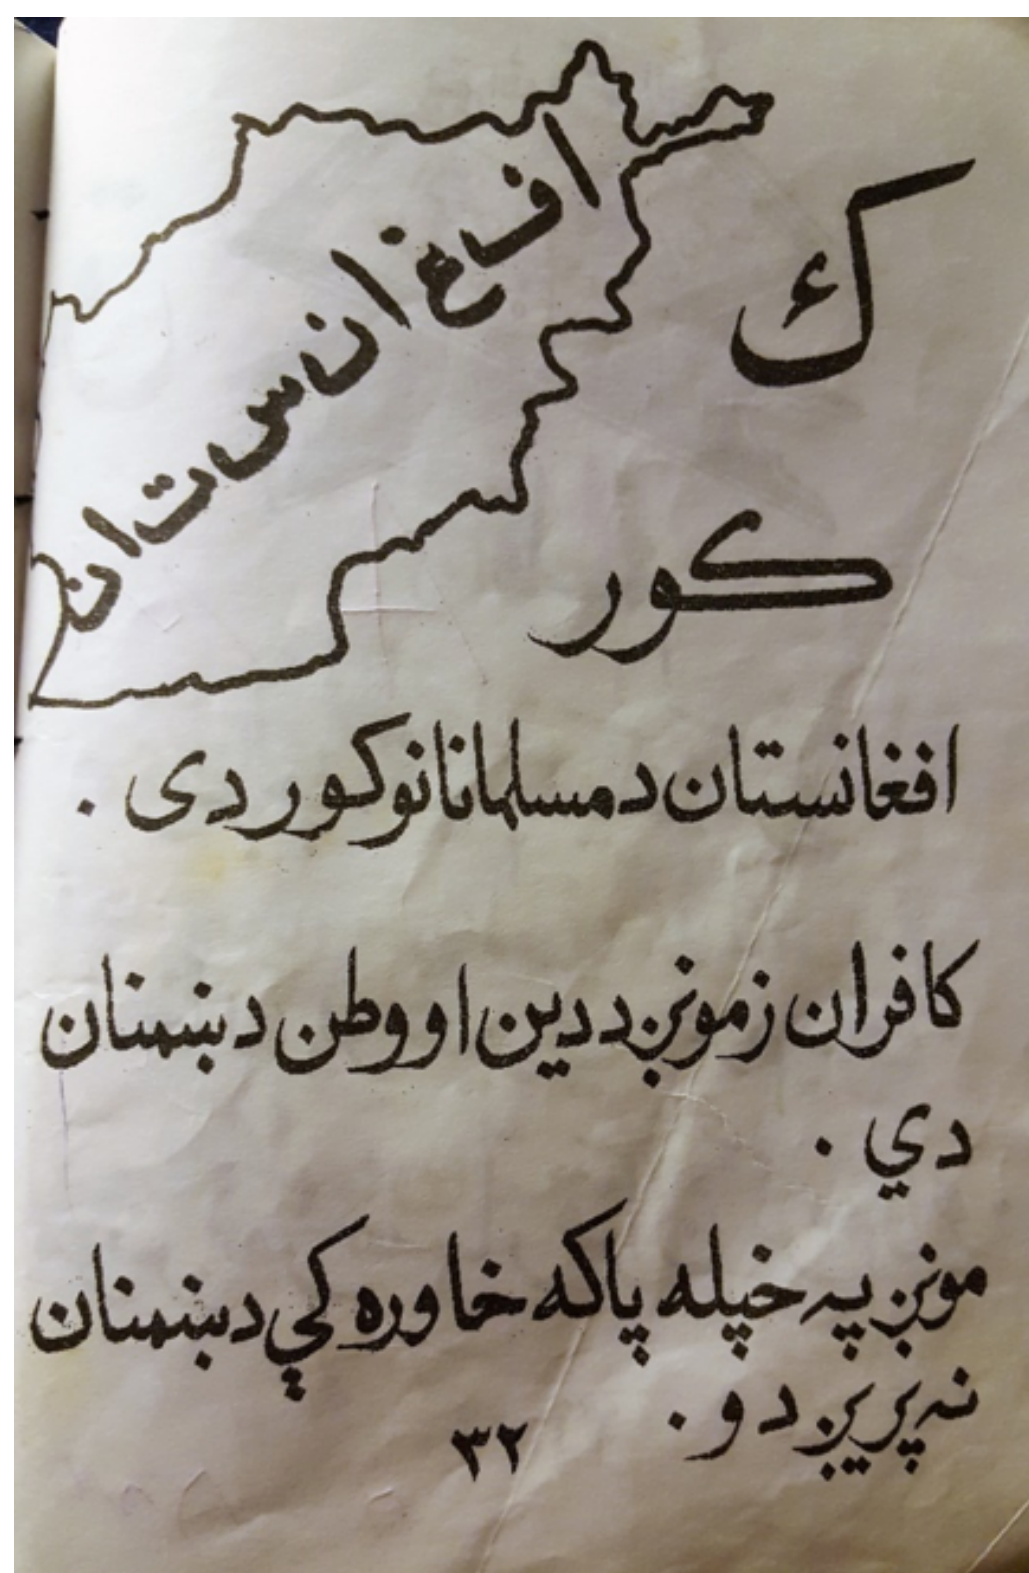 ا ف غ ا ن س ت ا ن
ک
کور
افغانستان د مسلمانانو کور دی .
کافران زمونږ د دین او وطن دښمنان
دي .
مونږ په خپله پاکه خاوره کې دښمنان
نه پرېږدو .
۳۲